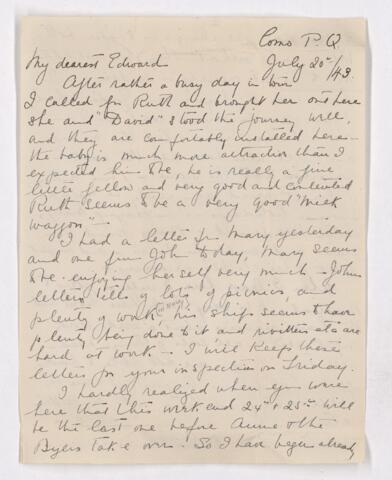 Como P.Q.
July 20/43.
My dearest Edward
After rather a busy day in town
I called for Ruth and brought her out here
She and "David" stood the journey well,
and they are comfortably installed here -
the baby is much more attractive than I
expected him to be, he is really a fine
little fellow and very good and contented.
Ruth seems to be a very good "milk
waggon" -
I had a letter fr Mary yesterday
and one from John today, Mary seems
to be enjoying herself very much - Johns
letters tells of lots of picnics, and
plenty of work, his ship seems to have
plenty being done to it and rivitters etc are
hard at work - I will keep these
letters for your inspection on Friday.
I hardly realized when you were
here that this week end 24th & 25th will
be the last one before Anne & the
Byers take over. So I have begun already